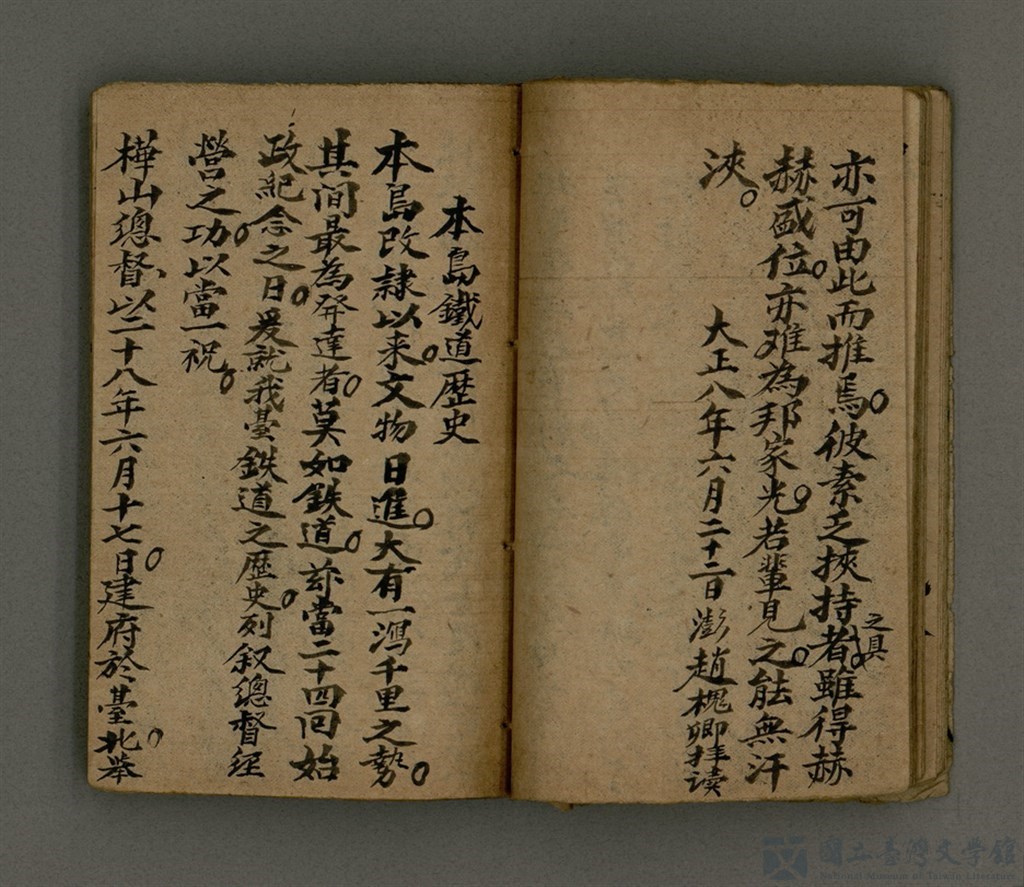 亦可由此而推焉。彼素乏挾持者。雖得赫
之具
赫盛位。亦难為邦家光。若輩見之。能無汗
浹。
大正八年六月二十二日澎趙槐卿拜读
本島鐵道歷史
本島改隸以来。文物日進。大有一瀉千里之勢。
其间最為發達者。莫如鉄道。茲當二十四回始
政紀念之日。爰就我臺鉄道之歷史。列叙總督经
營之功。以當一祝。
樺山總督、以二十八年六月十七日。建府於臺北。举
國立臺灣文學館
National Museum of Taiwan Literature